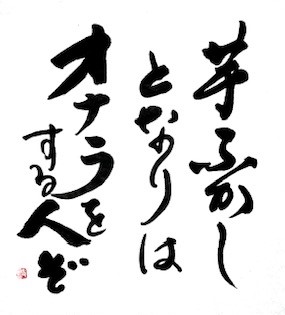 芋ふかし
となりは
オナラを
する人ぞ